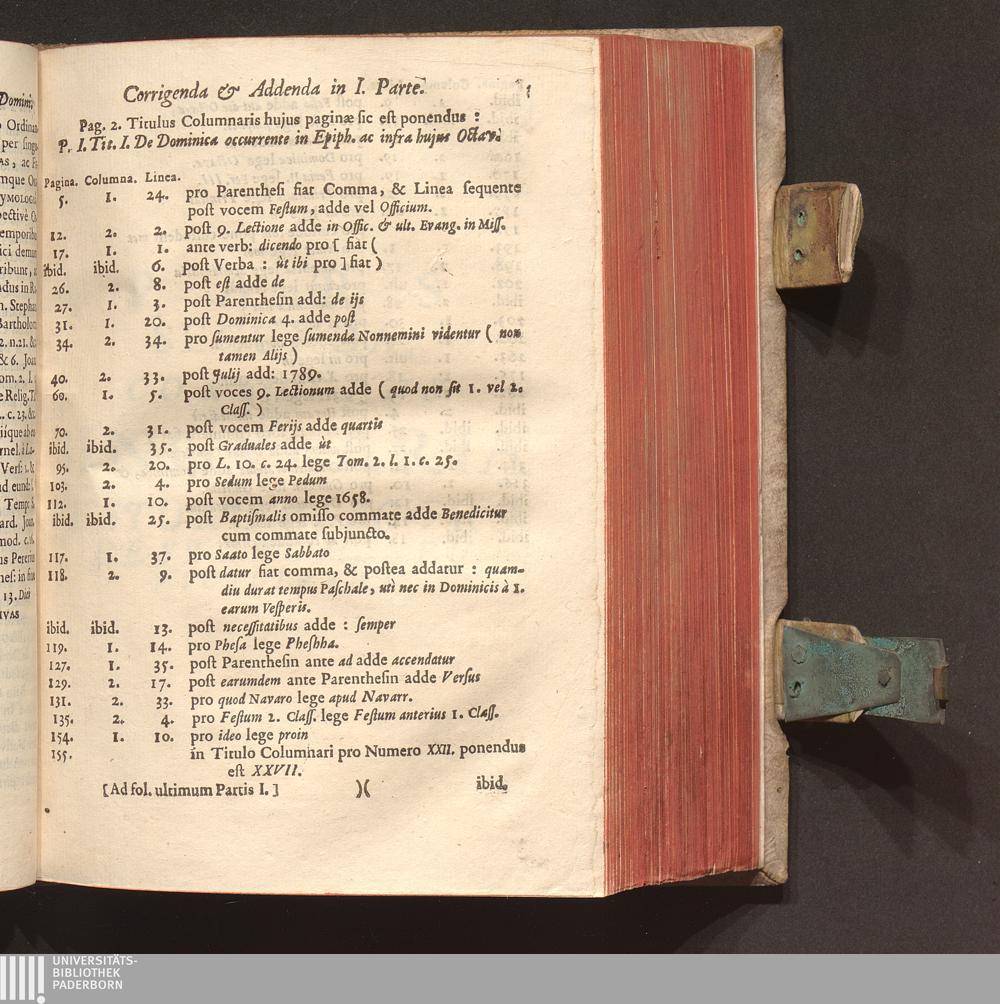 Corrigenda & Addenda in I. Parte.
Pag. 2. Titulus Columnaris hujus paginæ sic est ponendus :
P. I. Tit. I. De Dominica occurrente in Epiph. ac infra hujus Octav.
Pagina. Columna. Linea.
5. 1. 24. pro Parenthesi fiat Comma, & Linea sequente
post vocem Festum, adde vel Officium.
12. 2. 2. post 9. Lectione adde in Offic. & ult. Evang. in Miss.
17. 1. 1. ante verb: dicendo pro [ fiat (
ibid. ibid. 6. post Verba : ùt ibi pro ] fiat )
26. 2. 8. post est adde de
27. 1. 3. post Parenthesin add: de ijs
31. 1. 20. post Dominica 4. adde post
34. 2. 34. pro sumentur lege sumendæ Nonnemini videntur ( non
tamen Alijs )
40. 2. 33. post Julij add: 1789.
60. 1. 5. post voces 9. Lectionum adde ( quod non sit 1. vel 2.
Class. )
70. 2. 31. post vocem Ferijs adde quartis
ibid. ibid. 35. post Graduales adde ùt
95. 2. 20. pro L. 10. c. 24. lege Tom. 2. l. 1. c. 25.
103. 2. 4. pro Sedum lege Pedum
112. 1. 10. post vocem anno lege 1658.
ibid. ibid. 25. post Baptismalis omisso commate adde Benedicitur
cum commate subjuncto.
117. 1. 37. pro Saato lege Sabbato
118. 2. 9. post datur fiat comma, & postea addatur : quam-
diu durat tempus Paschale, utì nec in Dominicis à 1.
earum Vesperis.
ibid. ibid. 13. post necessitatibus adde : semper
119. 1. 14. pro Phesa lege Pheshha.
127. 1. 35. post Parenthesin ante ad adde accendatur
129. 2. 17. post earumdem ante Parenthesin adde Versus
131. 2. 33. pro quod Navaro lege apud Navarr.
135. 2. 4. pro Festum 2. Class. lege Festum anterius 1. Class.
154. 1. 10. pro ideo lege proin
155. in Titulo Columnari pro Numero XXII. ponendus
est XXVII.
[Ad fol. ultimum Partis I. ] )( ibid.
UNIVERSITÄTS-
BIBLIOTHEK
PADERBORN